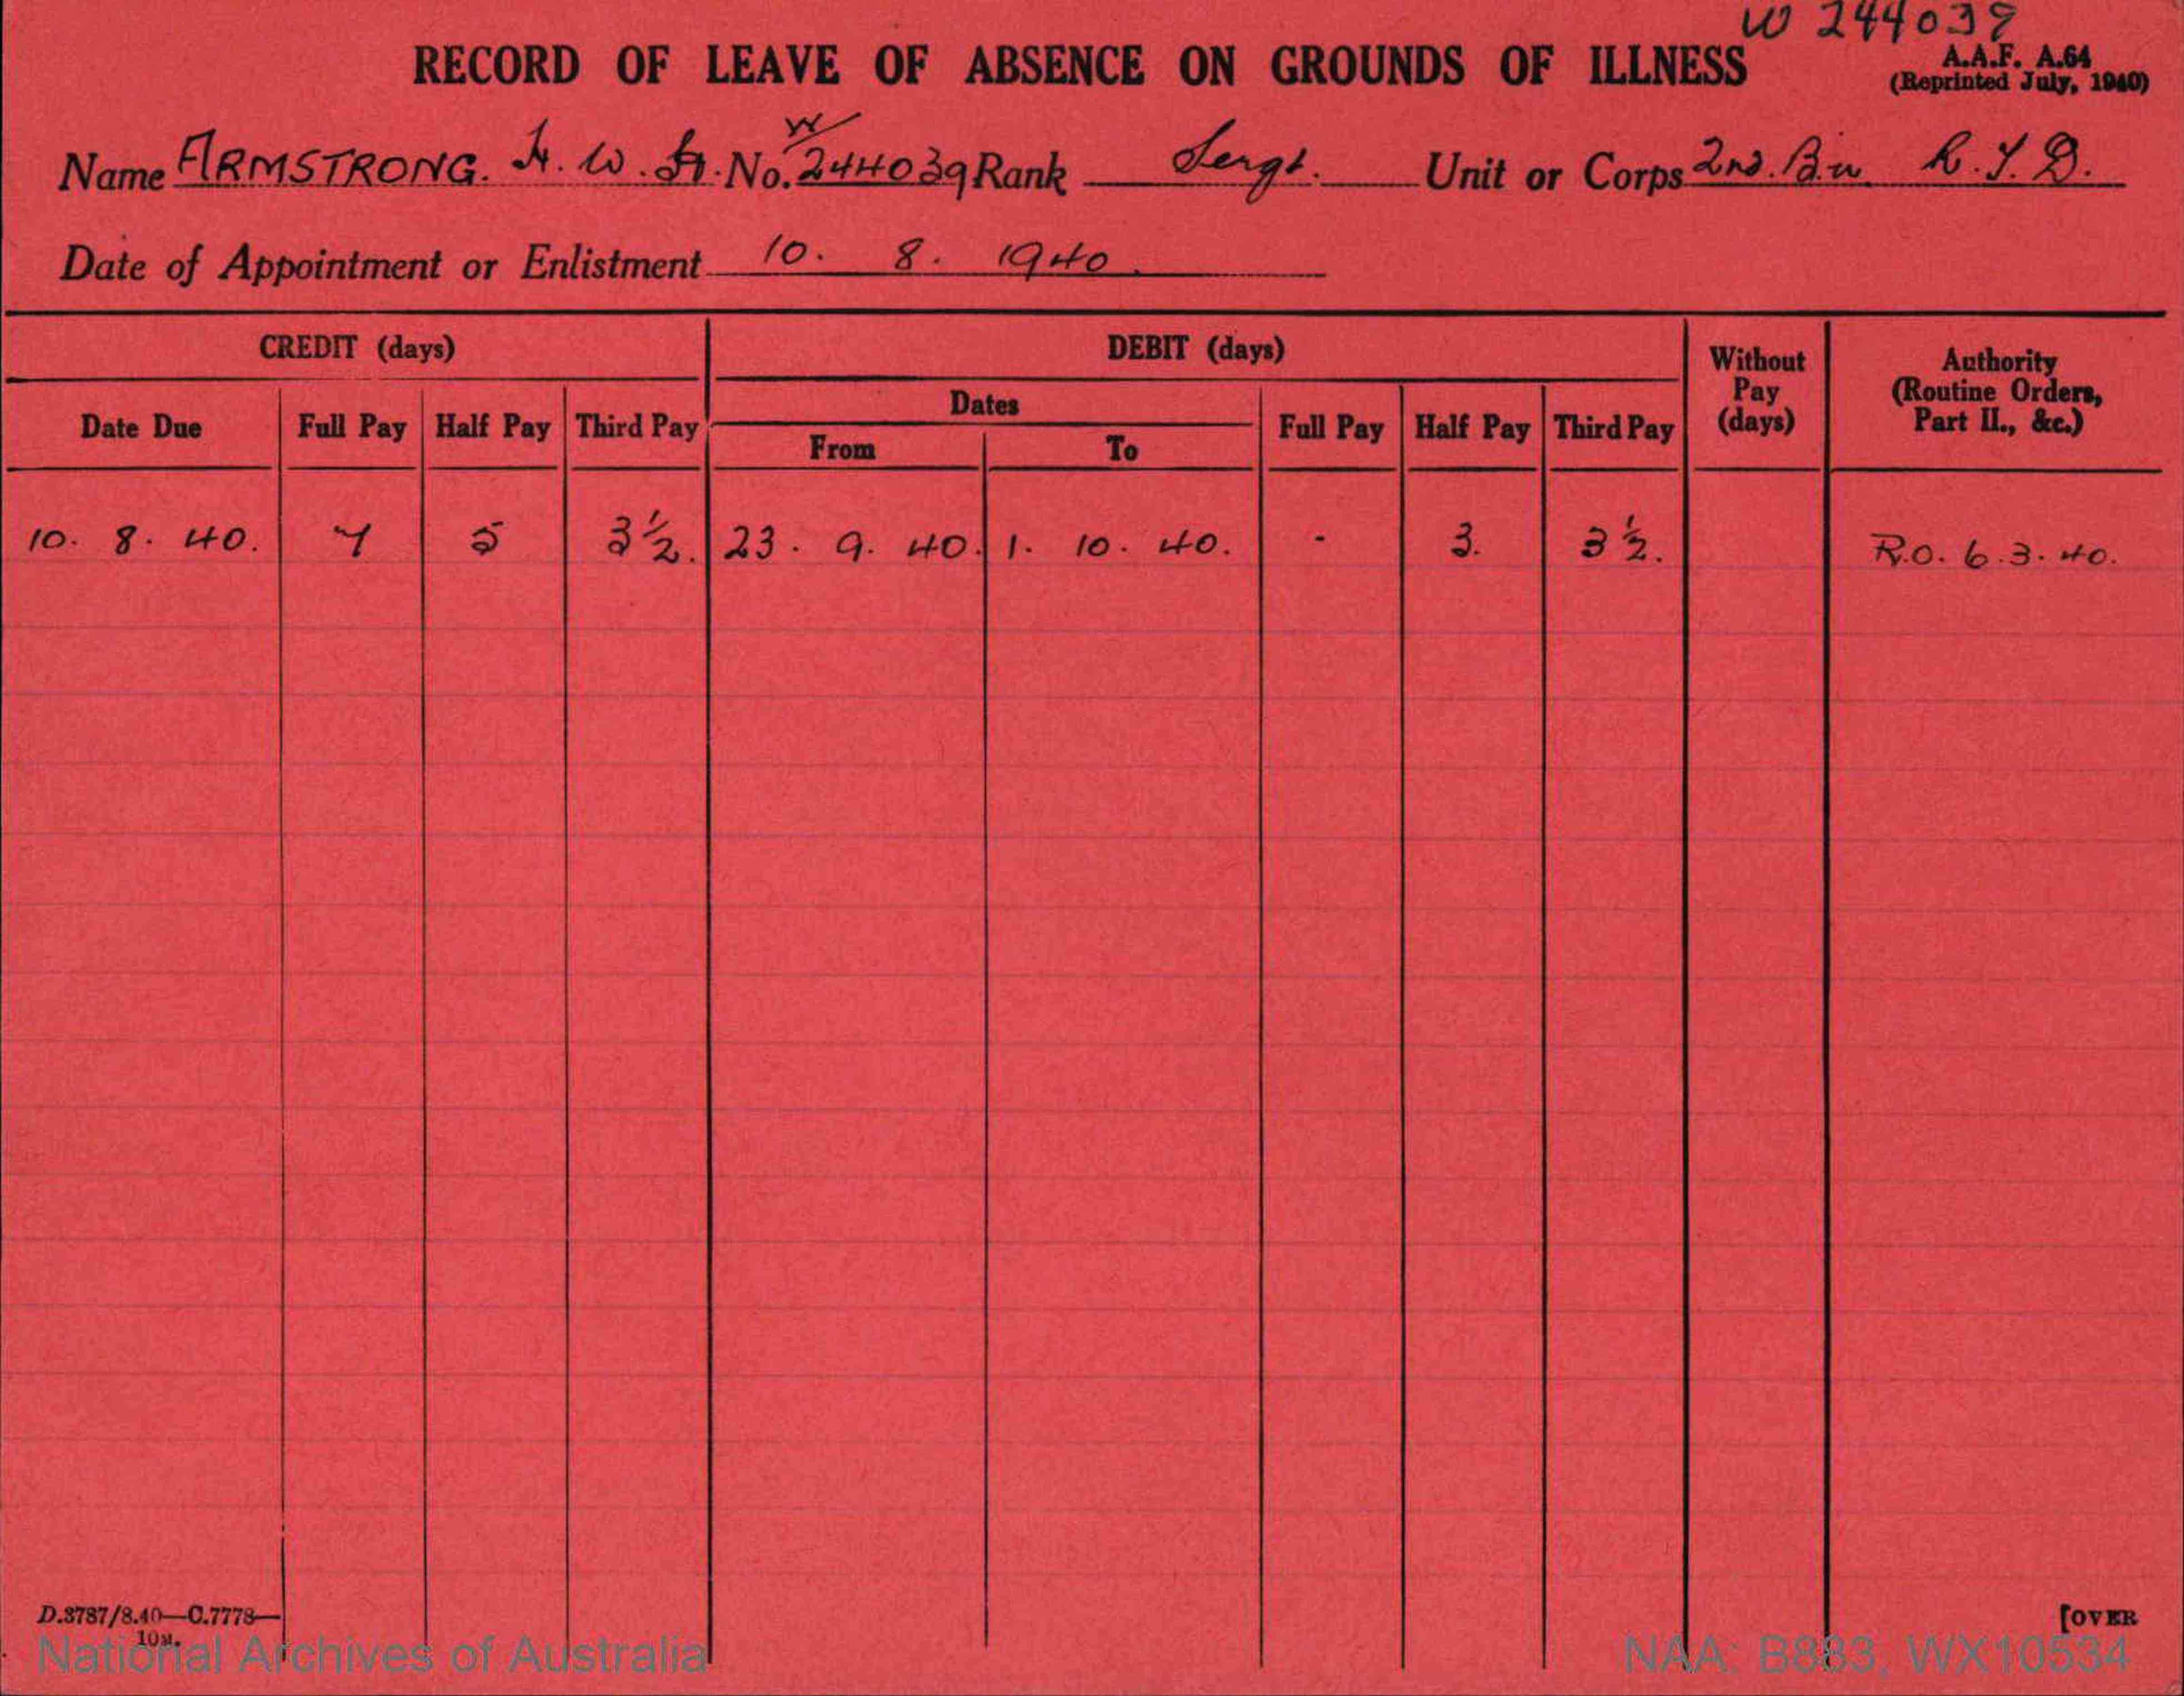 W 244039
RECORD OF LEAVE OF ABSENCE ON GROUNDS OF ILLNESS
A.A.F. A.64
(Reprinted July, 1940)
W/
Name ARMSTRONG. H. W. No. 244039 Rank Sergt. Unit or Corps 2nd. Bn R.T.D.
Date of Appointment or Enlistment 10. 8. 1940.
CREDIT (days) DEBIT (days) Without Pay (days) Authority (Routine Orders, Part II., &c.)
Dates
Date Due Full Pay Half Pay Third Pay From To Full Pay Half Pay Third Pay
10. 8. 40. 7 5 3½. 23. 9. 40. 1. 10. 40. - 3. 3½. R.O. 63.40.
D.3787/8.40—C.7778—
10M.
[OVER
National Archives of Australia NAA: B883, WX10534